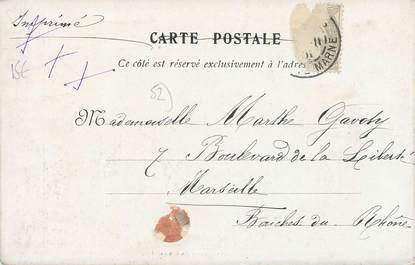 Imprimé
CARTE POSTALE
Ce côté est réservé exclusivement à l'adres
MARNE
15€
52
Mademoiselle Marthe Gavoty
7 Boulevard de la Liberté
Marseille
Bouches du Rhône